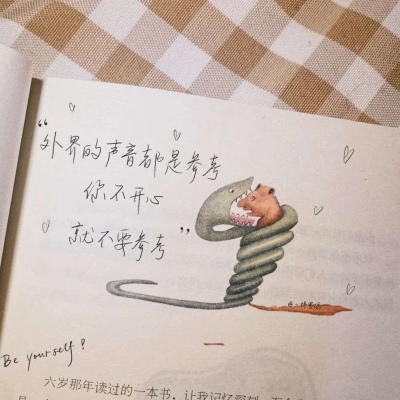 “外界的声音都是参考
你不开心
就不要参考”
一
Be yourself!
六岁那年读过的一本书，让我记忆深刻，